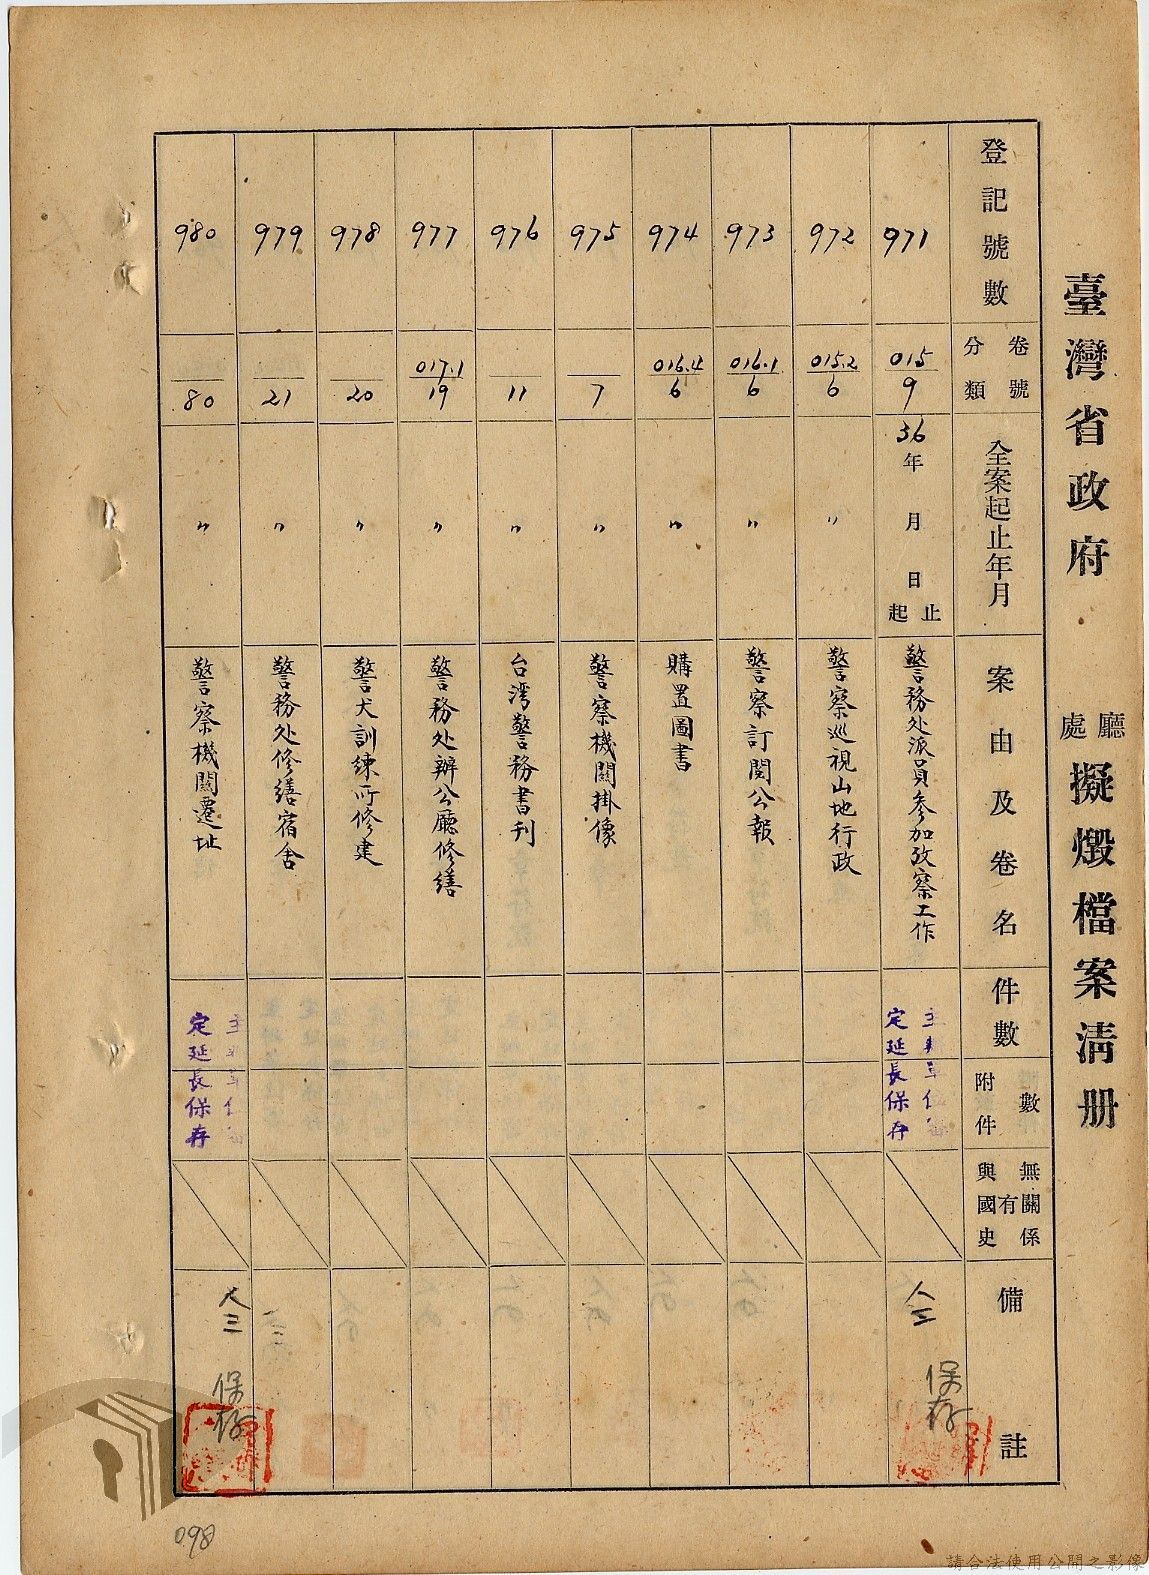 臺灣省政府 廳處 擬燬檔案清册
登記號數
卷號 分類
全案起止年月
案由及卷名
件數
附件數
與國史有無關係
備註
971
015/9
36年 月 日 起止
警務处派員参加攷察工作
定延長保存
人三
保存
972
015.2/6
〃
警察巡視山地行政
973
016.1/6
〃
警察訂閱公報
974
016.4/6
〃
購置圖書
975
7
〃
警察機關掛像
976
11
〃
台湾警務書刊
977
017.1/19
〃
警務处辦公廳修繕
978
20
〃
警犬訓練所修建
979
21
〃
警務处修繕宿舍
980
80
〃
警察機關遷址
定延長保存
人三
保存
098
請合法使用公開之影像